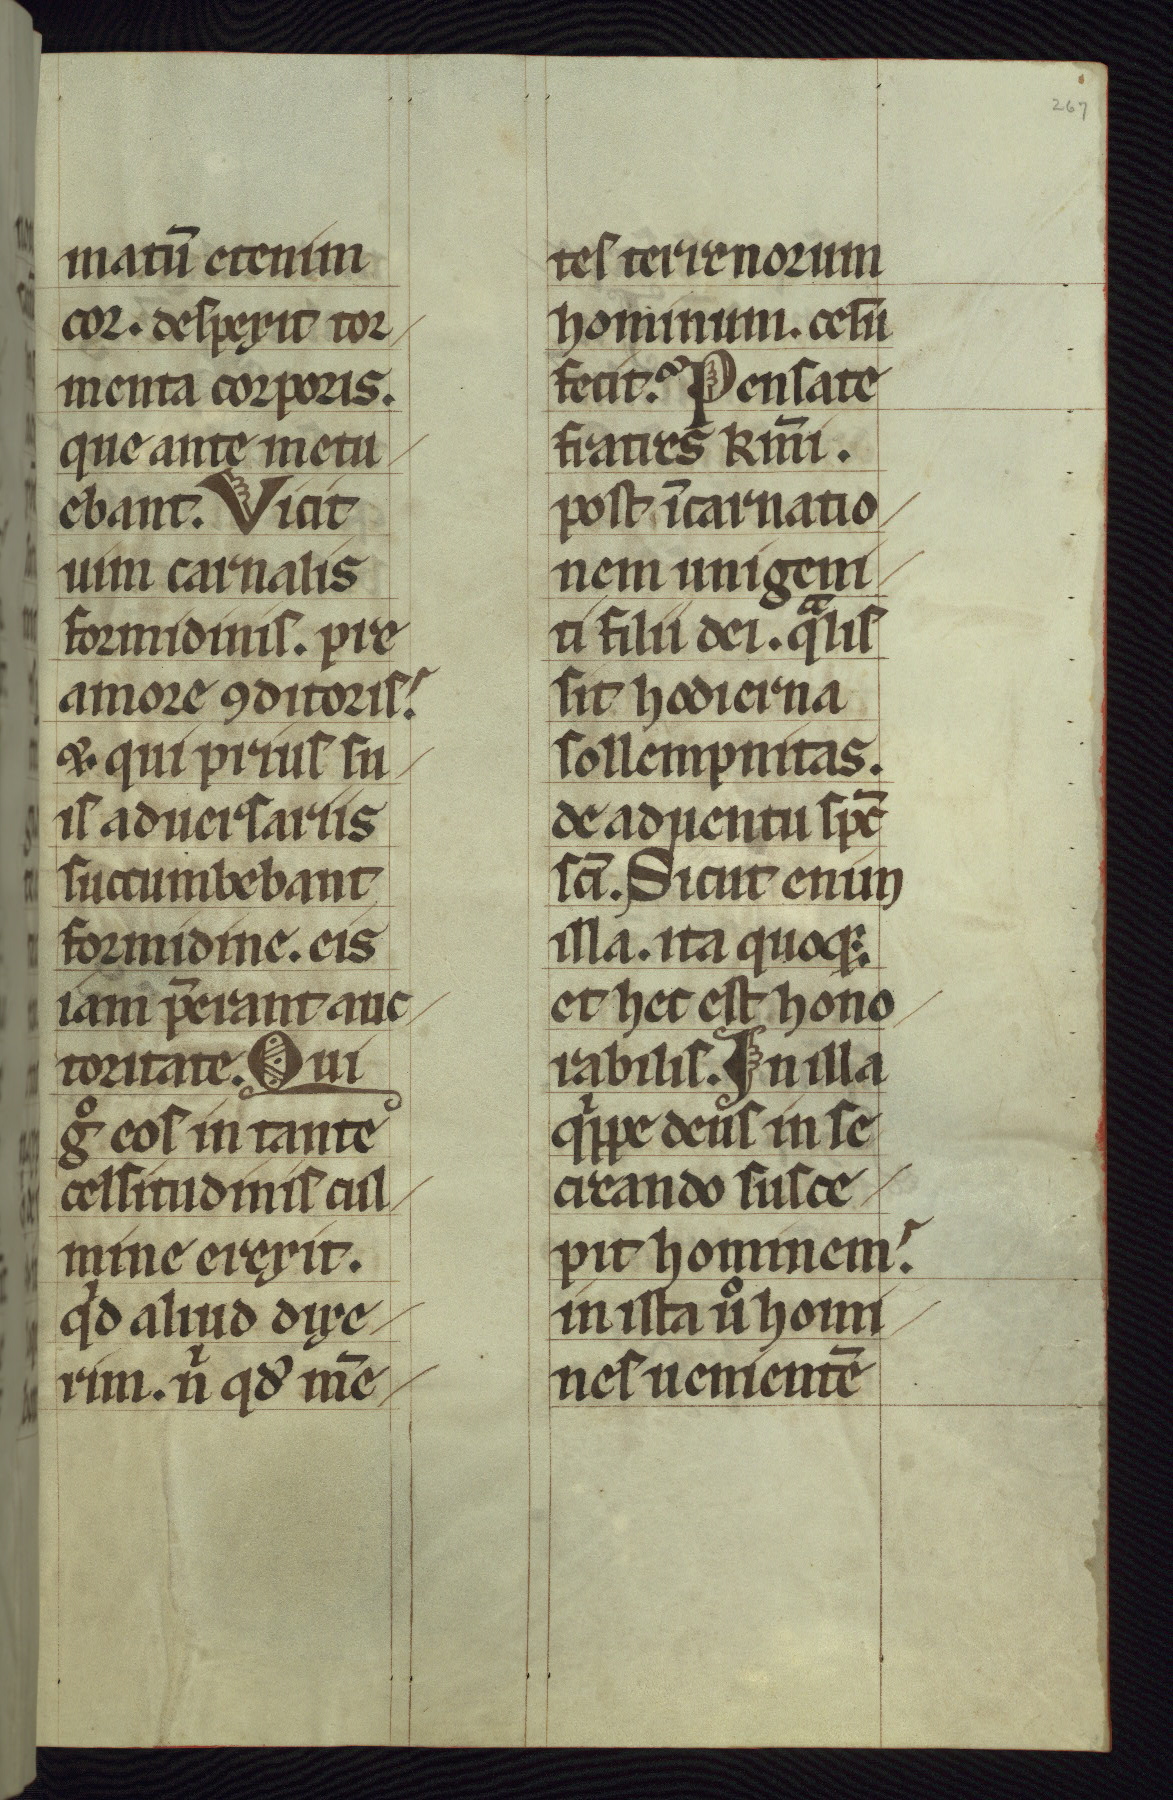 267
matū etenim
cor. despexit tor
menta corporis.
que ante metu
ebant. Vicit
uim carnalis
formidinis. pre
amore ꝯditoris.
⁊ qui prius su
is aduersariis
succumbebant
formidine. eis
iam p̄erant auc
toritate. Qui
gͦ eos in tante
celsitudinis cul
mine erexit.
qͥd aliud dixe
rim. nͥ qđ mēe
tes terrenorum
hominum. celū
fecit. Pensate
fratres kmi.
post īcarnatio
nem unigeni
ti filii dei. qͣlis
sit hodierna
sollempnitas.
de aduentu spc̄
sci. Sicut enim
illa. ita quoqꝫ
et hec est hono
rabilis. In illa
qͥppe deus in se
creando susce
pit hominem.
in ista uͦ homi
nes uenientē